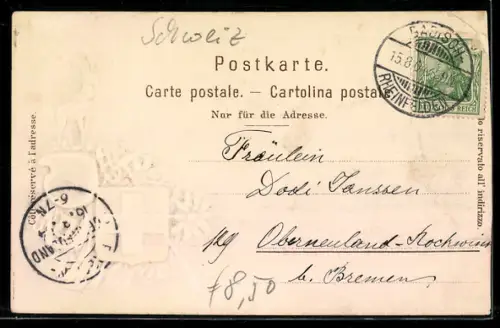 Schweiz
BADISCH-
15.8
RHEINFELDEN
REICH
Postkarte.
Carte postale. — Cartolina postale
Nur für die Adresse.
Côté réservé à l'adresse.
lato riservato all' indirizzo.
Fräulein
Dodi Janssen
Oberneuland-Rockwin
b. Bremen
6-7N
LAND
f 8,50